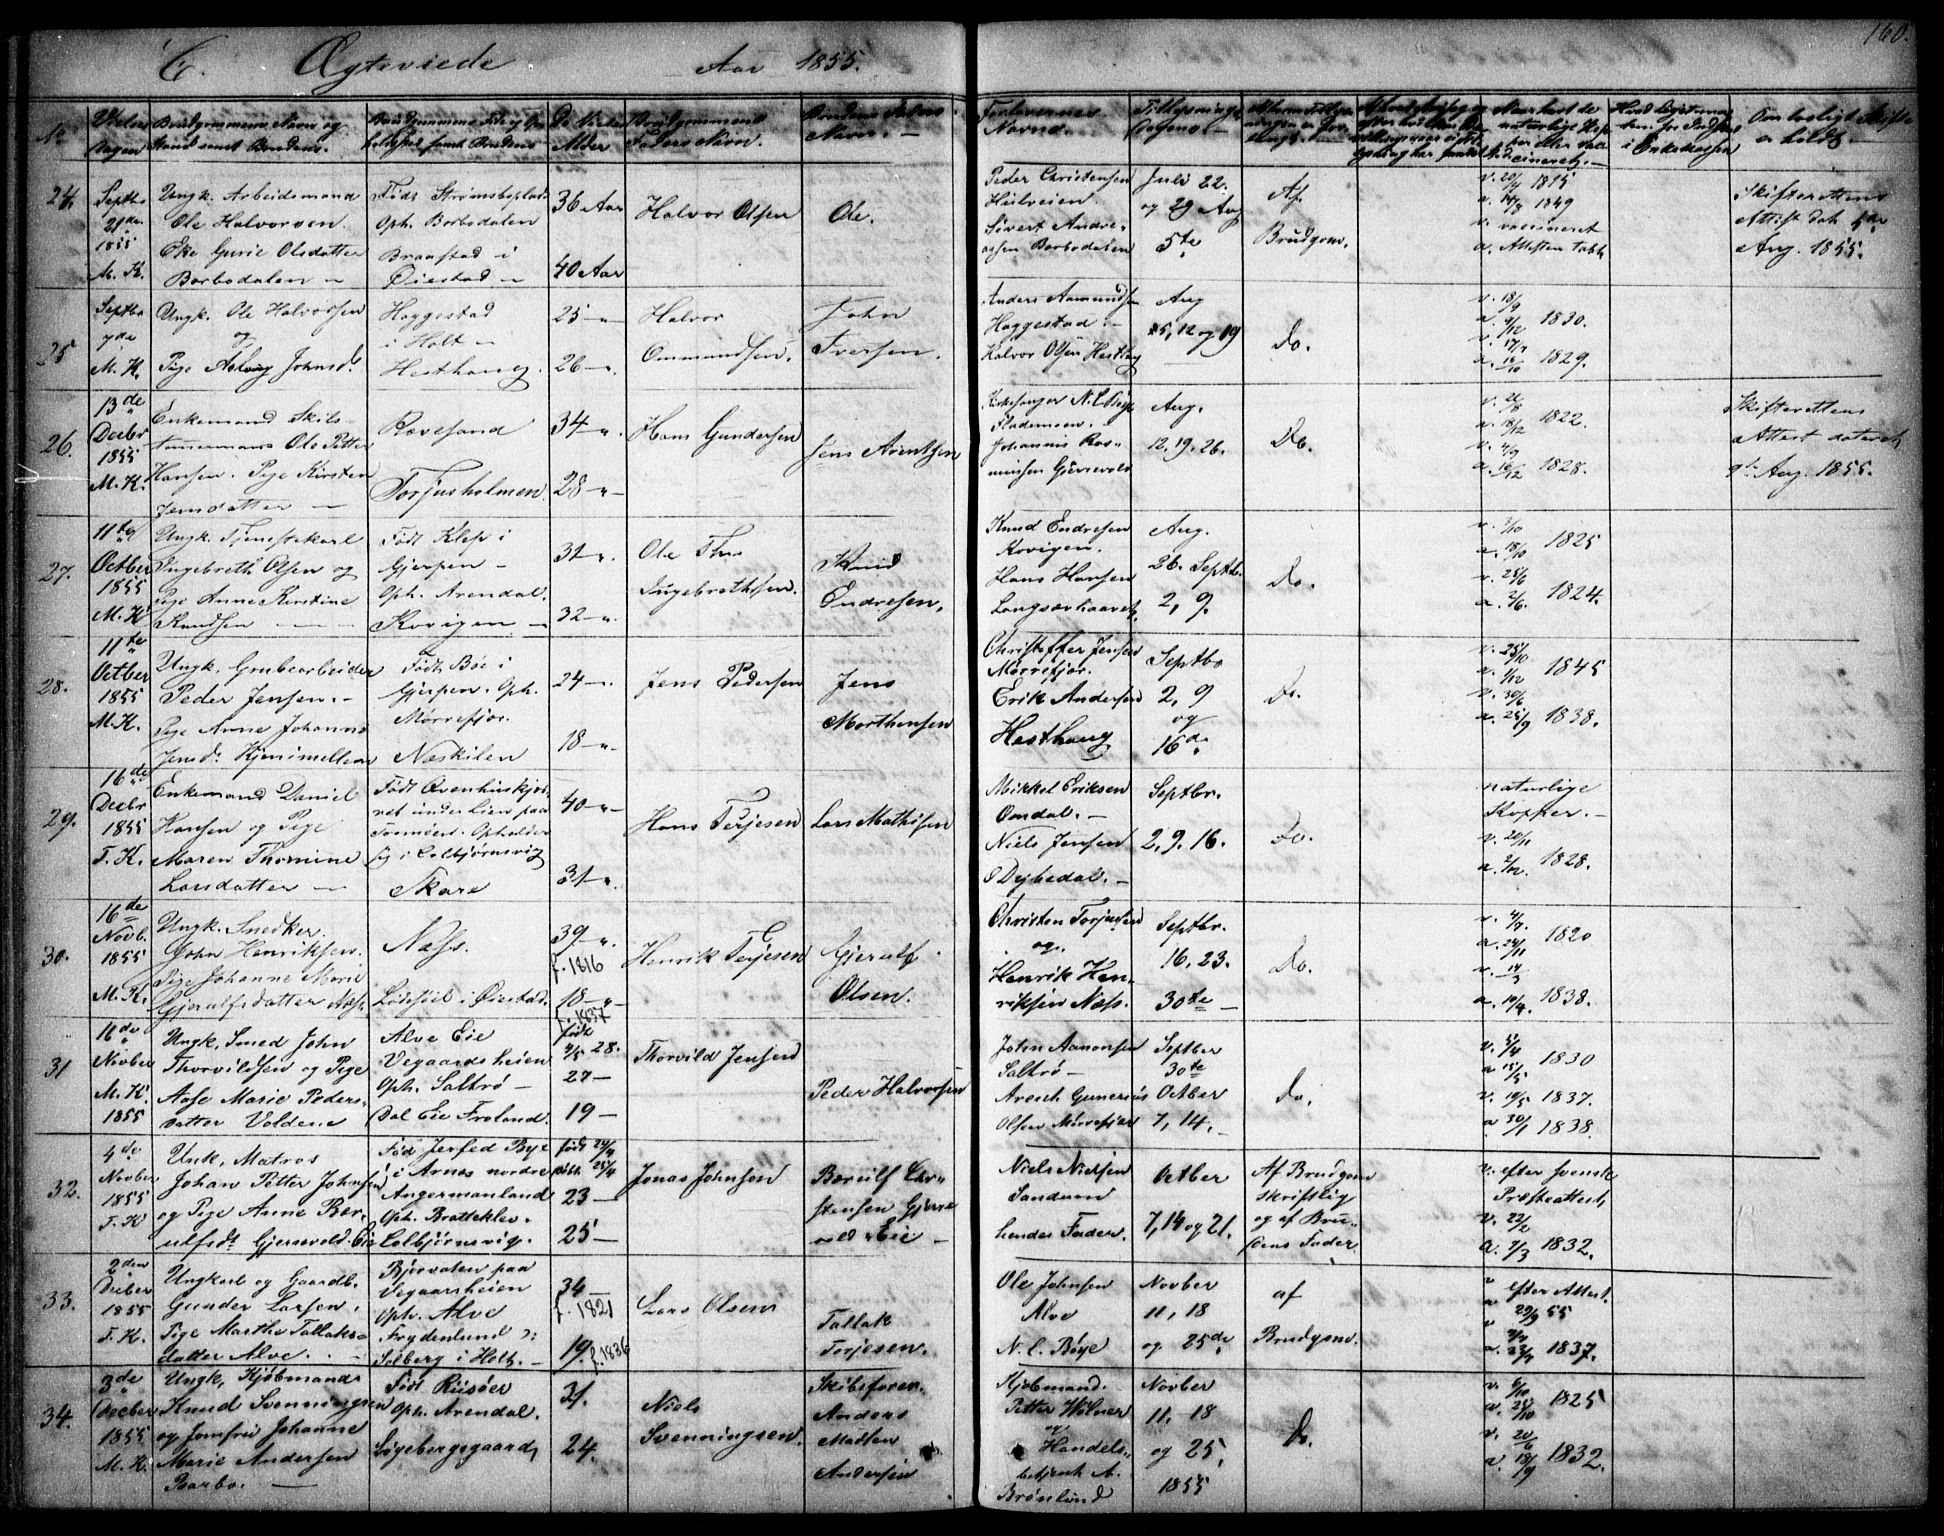 160.
C. Ægteviede Aar 1855.
No
Vielses
dagen
Brudgommens Navn og
Stand samt Brudens.
De Viedes
Alder
Brudgommens
Faders Navn.
Brudens Faders
Navn. —
Forlovernes
Navne.
Tillysnings
dagene. —
Om lovligt Skifte
er holdt.
24.
Septbr
1855
M. K.
Ungk. Arbeidsmand
Ole Halvorsen.
Eke Gurie Olsdatter
Borbodalen —
Oph. Borbodalen
Braastad i
Øiestad —
36 Aar
40 Aar
Halvor Olsen
Ole.
Peder Christensen
Heilveien.
Sivert Andre-
assen Borbodalen
Juli 22.
og 29 Aug
5te
Af
Brudgom.
v. 1815
a. 1849
v. vaccineret
a. Attesten tabt
Skifterettens
Attest dat. 5de
Aug. 1855.
25
Septbr
7de
M. K.
Ungk. Ole Halvorsen
og
Pige Aslaug Johnsd.
Haggestad
i Holt —
Hesthaug.
25 — "
26 — "
Halvor
Ommundsen.
John
Iversen.
Anders Aamundsen
Haggestad. —
Halvor Olsen Hesthag
Aug
5, 12 og 19
Do.
v. 18/9
a. 9/12 1830.
v. 17/7
a. 1829.
26.
13de
Decbr
1855
M. K.
Enkemand Skils-
tømmermand Ole Petter
Hansen. Pige Kirsten
Jensdatter —
Rævesand
Torjusholmen
34 — "
28 — "
Hans Gundersen
Jens Arentsen
Kirkesanger N. C. Bøye
Flademoen.
Johannis Ras-
mussen Gjervold
Aug.
12, 19, 26.
Do.
v. 1822.
a. 18/12
v. 4/9
a. 16/12 1828.
Skifterettens
Attest dateret
9de Aug. 1855.
27.
11te
Octber
1855
M. K.
Ungk. Tjenestekarl
Ingebreth Olsen og
Pige Anne Kirstine
Knudsen — — —
Født Klep i
Gjerpen —
Oph. Arendal.
Kovigen —
31 — "
32 — "
Ole Ths
Ingebrethsen.
Knud
Endresen.
Knud Endresen
Kovigen.
Hans Hansen
Langsævhaavet
Aug.
26. Septbr.
2, 9.
Do.
v. 1/10
a. 18/10 1825
v. 25/6
a. 2/6. 1824.
28.
11te
Octber
1855
M. K.
Ungk. Grubearbeider
Peder Jensen. —
Pige Anne Johanne
Jensd.
Født Bøe i
Gjerpen. Oph.
Mørrefjær.
Næskilen
24 — "
18 — "
Jens Pedersen
Jens
Morthensen
Christoffer Jensen
Mørrefjær.
Erik Andersen
Hesthaug
Septbr
2, 9
og
16de
Do.
v. 25/10 1845
a. 1/12
v. 30/6
a. 25/9 1838.
29.
16de
Decbr
1855
T. K.
Enkemand Daniel
Hansen og Pige
Maren Thomine
Larsdatter —
Skare
40 — "
31 — "
Hans Terjesen
Lars Mathisen
Mikkel Eriksen
Omdal. —
Niels Jensen
Dyhedal. —
Septbr.
2, 9. 16.
Do.
naturlige
Kopper. —
v. 20/11
a. 2/12. 1828.
30.
16de
Novb.
1855
M. K.
Ungk. Snedker.
John Henriksen.
Pige Johanne Marie
Gjerulfsdatter Næss
Næss.
Løddesøl i Øiestad.
39 — "
f. 1816
18 — "
f. 1837
Henrik Terjesen
Gjerulf
Olsen.
Christen Torjussen
og.
Henrik Hen-
riksen Næss.
Septbr.
16, 23.
30te —
Do.
v. 4/7
a. 24/11 1820
v. 14/3
a. 10/4. 1838.
31
16de
Novber
M. K.
1855
Ungk. Smed John
Thorvildsen og Pige
Aase Marie Peders-
datter Voldene
Alve Eie
Vegaardsheien
Oph. Saltrø —
Dal Eie Froland.
født
4/5 28.
27 —
19 —
Thorvild Jensen
Peder Halvorsen
John Aanonsen
Saltrø —
Arosch Gunerius
Olsen Mørrefjær
Septber
30te
Octber
7, 14. —
Do.
v. 5/4
a 15/5 1830
v. 19/5 1837.
a 30/1 1838.
32.
4de
Novber
1855
T. K
Unk. Matros
Johan Petter Johnsen
og Pige Anne Bær-
ulfsdt Gjersevold. Eie
Fød Jerfed Bye
i Arnæs nordre
Angermanland
Oph. Bratteklev.
Colbjørnsvig.
født 24/4
døbt 25/4
23 —
25 —
Jonas Johnson
Bærulf Chr-
stensen Gjerse
vold Eie —
Niels Nielsen
Sandum
hendes Fader.
Octber
7, 14 og 21.
Af Brudgom
skriftlig
og af Bru-
dens Fader
v. efter svenske
Præsteattest,
v. 22/2
a. 7/3 1832.
33.
2den
Decber
1855
T. K.
Ungkarl og Gaardb.
Gunder Larsen.
Pige Marthe Tallaks-
datter Alve. —
Bjorvaten paa
Vegaarsheien
Oph. Alve
Frydenlund
Solberg i Holt. —
34 —
f. 1821
19. f. 1836
Lars Olsen
Tallak
Terjesen.
Ole Johnsen
Alve
N. C. Bøye
Novber
11, 18
og 25de
af
Brudgom.
v efter Attest.
a 29/9 55
v
a. 1837.
34.
3de
Decber
1855
M. K.
Ungk. Kjøbmand
Knud Svenningsen
og Jomfru Johanne
Marie Andersen
Barbo. —
Født Riisøer
Oph. Arendal.
Løgebergsgaard,
31.
24.
Niels
Svenningsen.
Skibsfører.
Anders
Madsen
Andersen
Kjøbmand.
Petter Wilner
og
Handels-
betjent A.
Brønlund
Novber
11, 18
og 25,
1855
Do.
v. 6/10
a. 25/10 1825
v. 20/6
a. 18/9 1832.